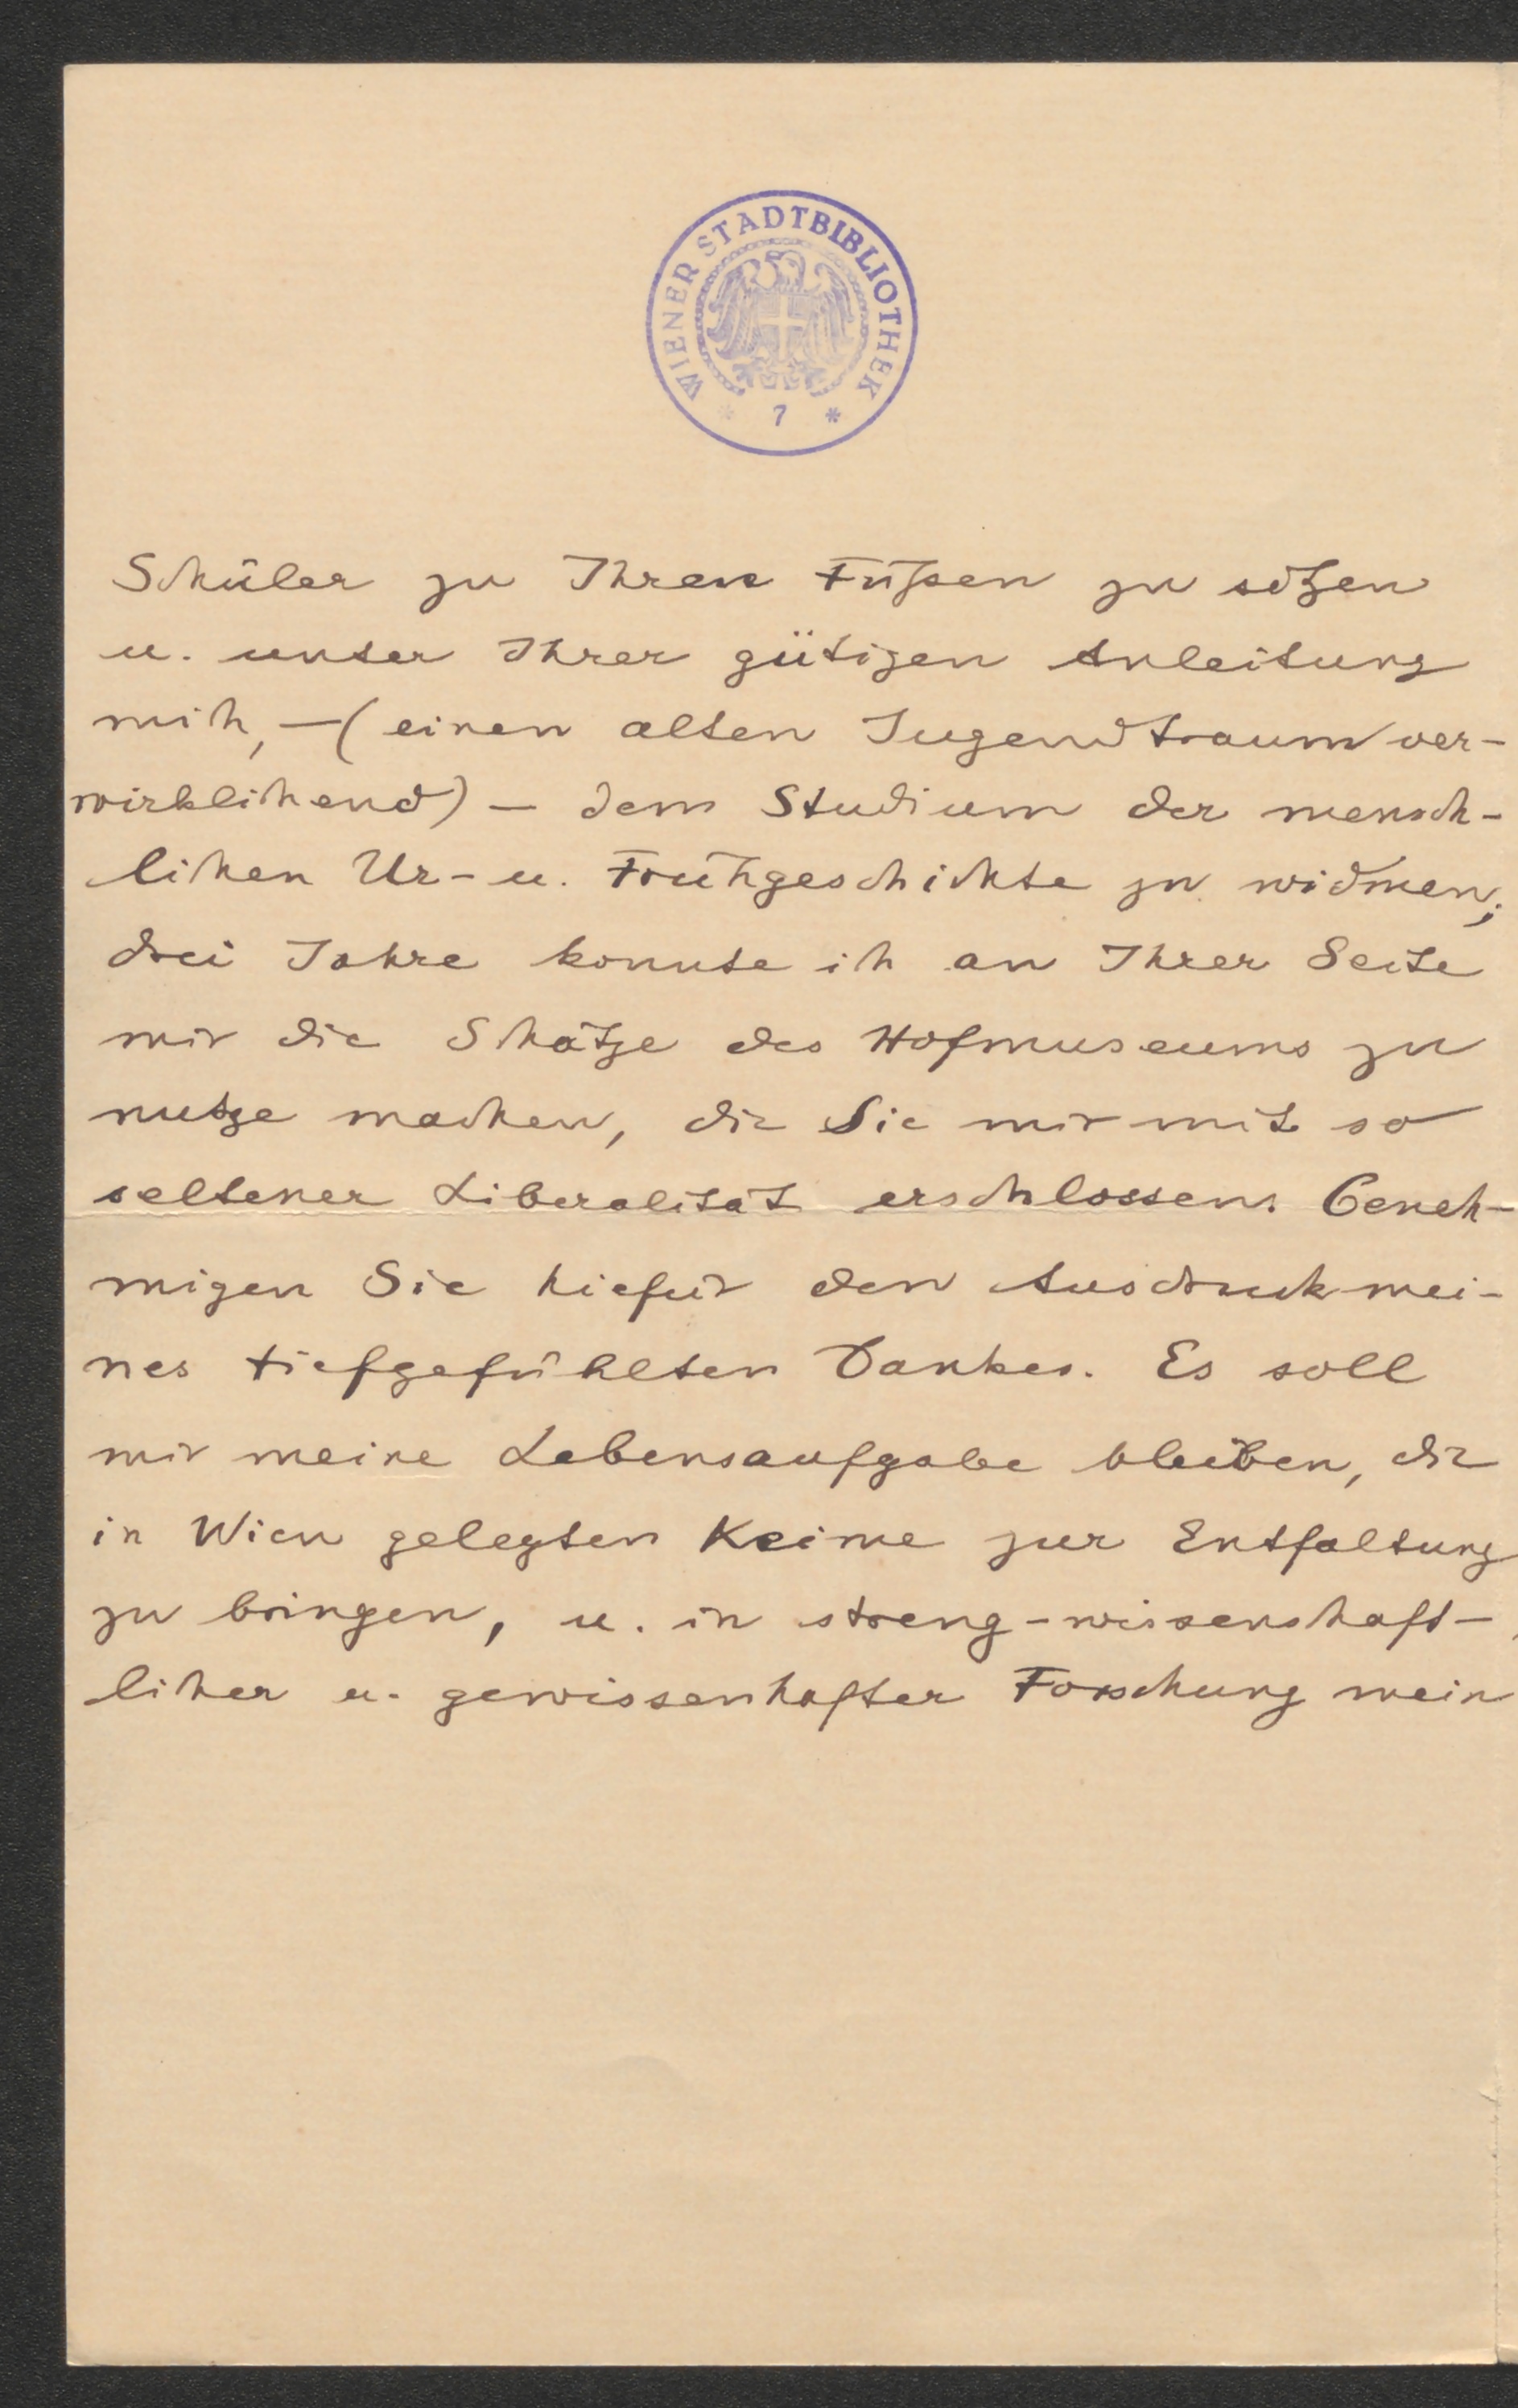 WIENER STADTBIBLIOTHEK
* 7 *
Schüler zu Ihren Füßen zu sitzen
u. unter Ihrer gütigen Anleitung
mich, – (einen alten Jugendtraum ver-
wirklichend) – dem Studium der mensch-
lichen Ur- u. Frühgeschichte zu widmen;
drei Jahre konnte ich an Ihrer Seite
mir die Schätze des Hofmuseums zu
nutze machen, die Sie mir mit so
seltener Liberalität erschlossen. Geneh-
migen Sie hiefür den Ausdruck mei-
nes tiefgefühlten Dankes. Es soll
mir meine Lebensaufgabe bleiben, die
in Wien gelegten Keime zur Entfaltung
zu bringen, u. in streng-wissenschaft-
licher u. gewissenhafter Forschung mein